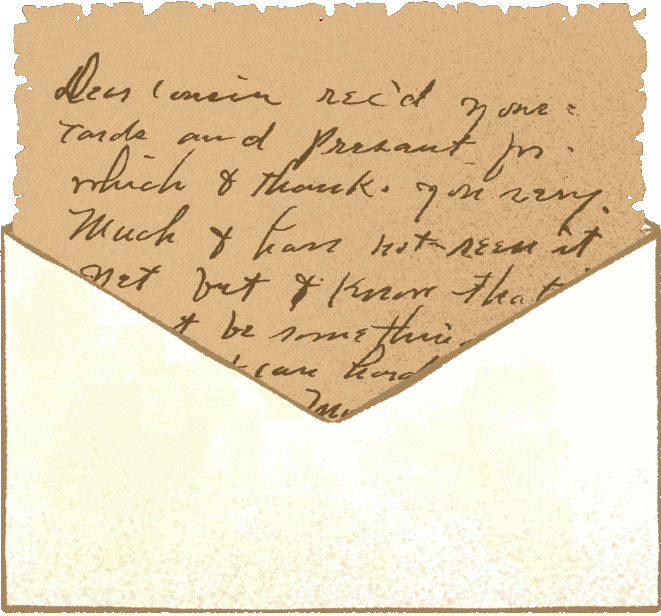 Dear Cousin rec'd your
Cards and Presant for
which I thank. you very
Much I have not seen it
yet but I Know that
it be somethin
I can hard